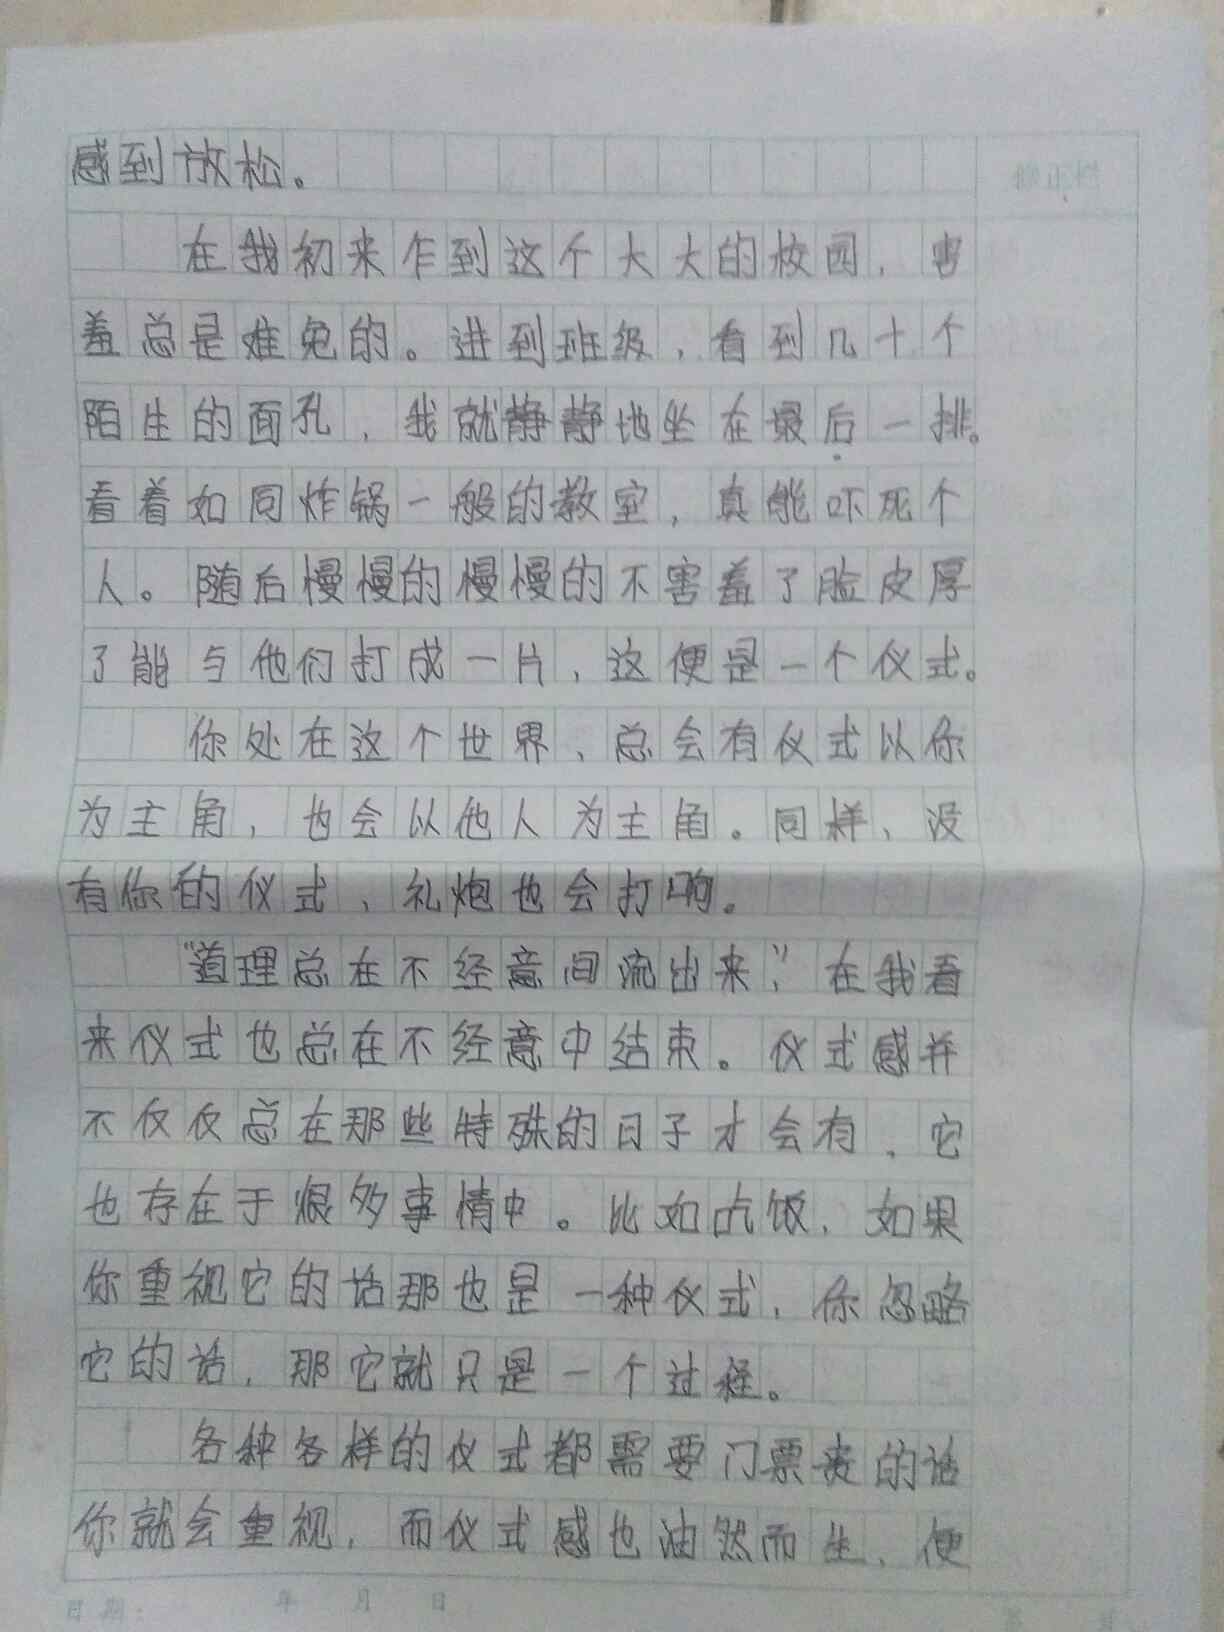 感到放松。
在我初来乍到这个大大的校园，害
羞总是难免的。进到班级，看到几十个
陌生的面孔，我就静静地坐在最后一排。
看着如同炸锅一般的教室，真能吓死个
人。随后慢慢的慢慢的不害羞了脸皮厚
了能与他们打成一片，这便是一个仪式。
你处在这个世界，总会有仪式以你
为主角，也会以他人为主角。同样，没
有你的仪式，礼炮也会打响。
“道理总在不经意间流出来，”在我看
来仪式也总在不经意中结束。仪式感并
不仅仅总在那些特殊的日子才会有，它
也存在于很多事情中。比如吃饭，如果
你重视它的话那也是一种仪式，你忽略
它的话，那它就只是一个过程。
各种各样的仪式都需要门票贵的话
你就会重视，而仪式感也油然而生，便
日期： 年 月 日